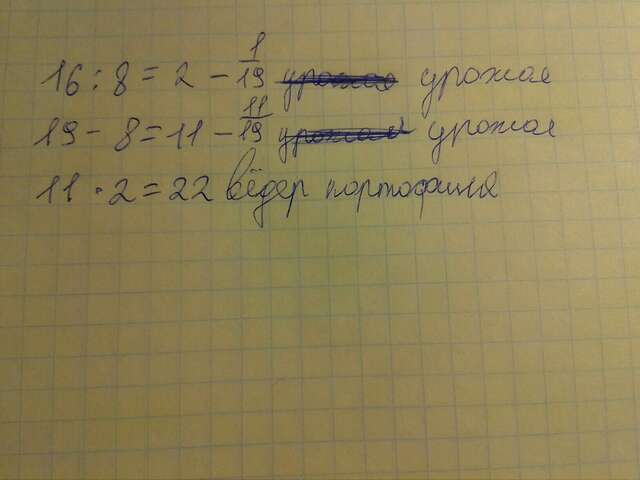 16 : 8 = 2 - 1/19 урожая урожая
19 - 8 = 11 - 11/19 урожая урожая
11 · 2 = 22 вёдер картофеля